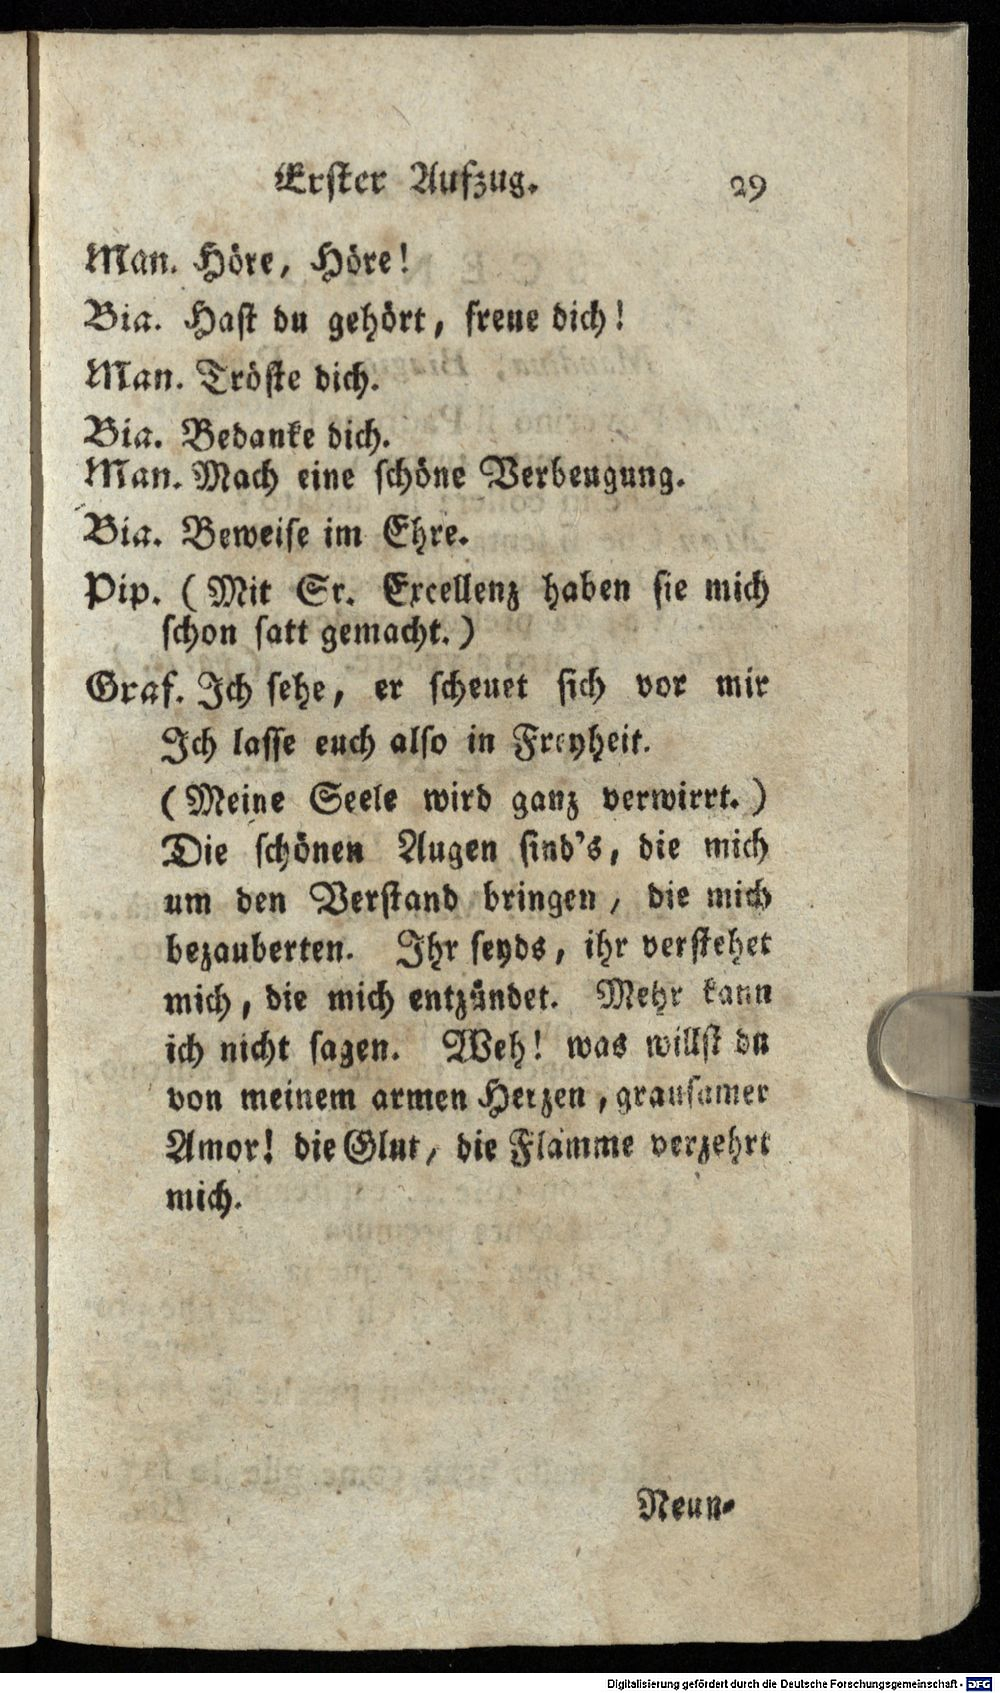 Erster Aufzug. 29
Man. Höre, Höre!
Bia. Hast du gehört, freue dich!
Man. Tröste dich.
Bia. Bedanke dich.
Man. Mach eine schöne Verbeugung.
Bia. Beweise im Ehre.
Pip. (Mit Sr. Excellenz haben sie mich
schon satt gemacht.)
Graf. Ich sehe, er scheuet sich vor mir
Ich lasse euch also in Freyheit.
(Meine Seele wird ganz verwirrt.)
Die schönen Augen sind's, die mich
um den Verstand bringen, die mich
bezauberten. Ihr seyds, ihr verstehet
mich, die mich entzündet. Mehr kann
ich nicht sagen. Weh! was willst du
von meinem armen Herzen, grausamer
Amor! die Glut, die Flamme verzehrt
mich.
Neun-
Digitalisierung gefördert durch die Deutsche Forschungsgemeinschaft - DFG